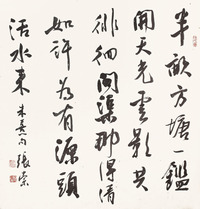 半畝方塘一鑑
開天光雲影共
徘徊問渠那得清
如許為有源頭
活水來 朱熹句 張索